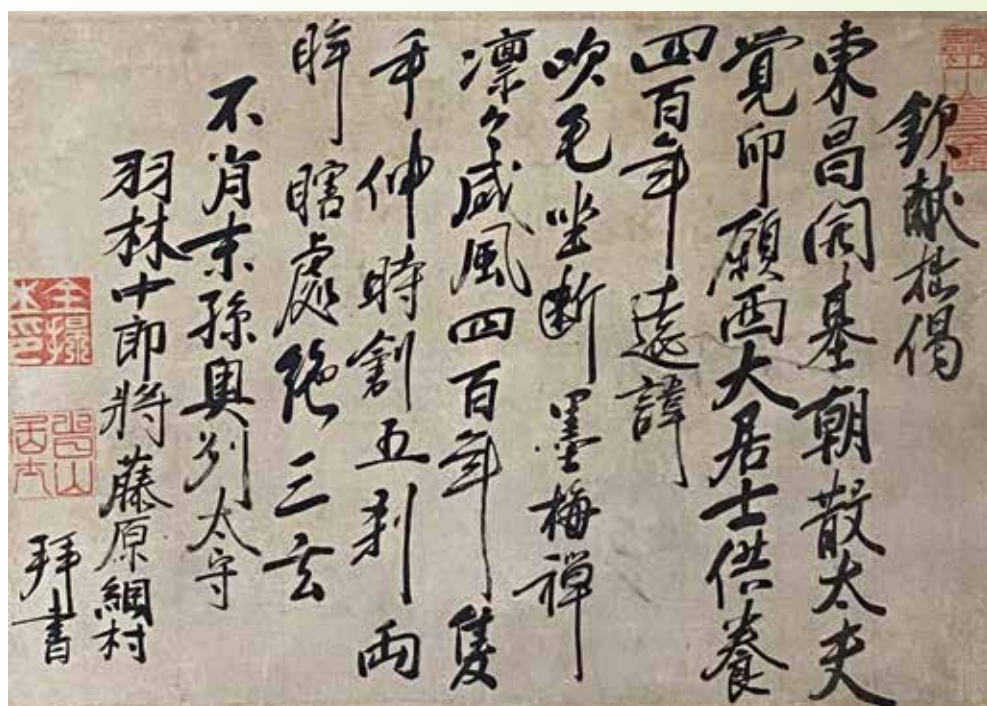 欽献拙偈
東昌開基朝散太夫
覚印願西大居士供養
四百年遠諱
吹毛坐断墨梅禅
凛々威風四百年隻
手伸時創五刹両
眸瞎處絶三玄
不肖末孫奥州太守
羽林中郎将藤原綱村
拝書